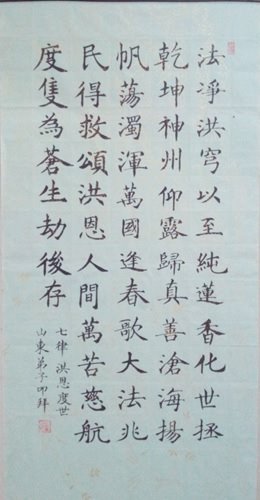 法凈洪穹以至純蓮香化世拯
乾坤神州仰露歸真善滄海揚
帆蕩濁渾萬國逢春歌大法兆
民得救頌洪恩人間萬苦慈航
度隻為蒼生劫後存
七律 洪恩度世
山東弟子叩拜